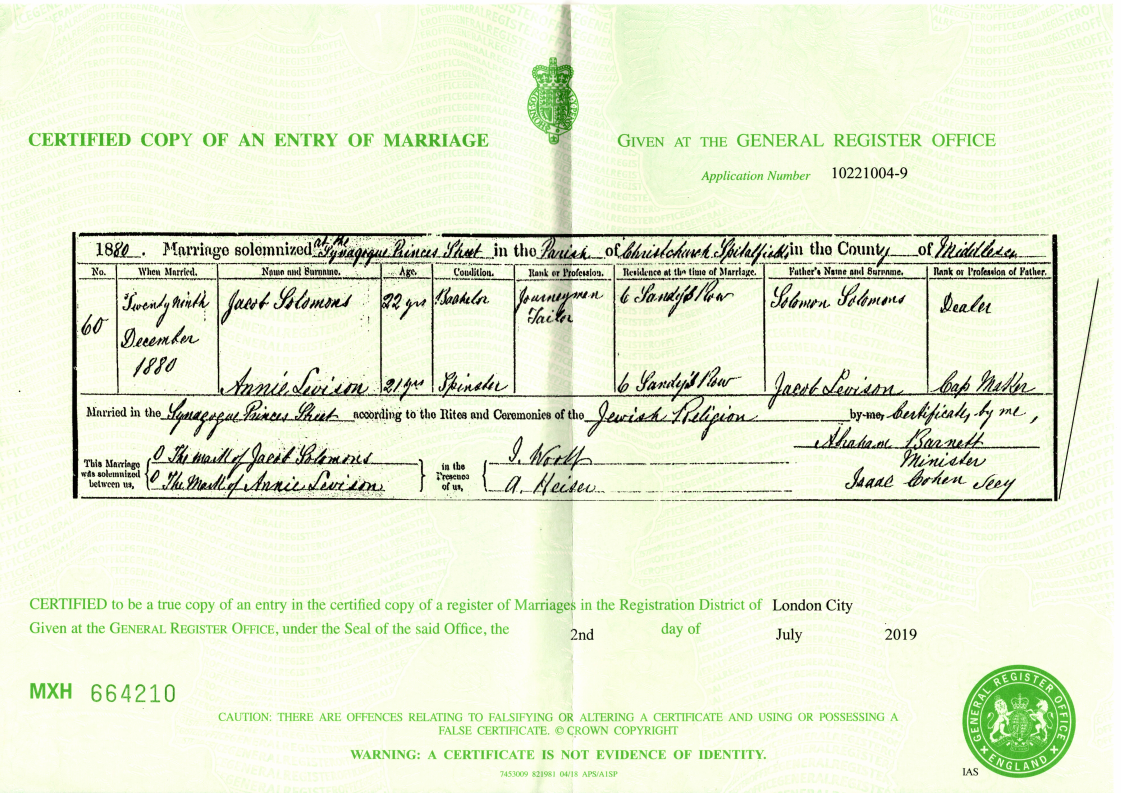 CERTIFIED COPY OF AN ENTRY OF MARRIAGE
GIVEN AT THE GENERAL REGISTER OFFICE
Application Number 10221004-9
1880. Marriage solemnized at the Synagogue Princes Street in the Parish of Christchurch Spitalfields in the County of Middlesex
No. When Married. Name and Surname. Age. Condition. Rank or Profession. Residence at the time of Marriage. Father's Name and Surname. Rank or Profession of Father.
60 Twenty ninth December 1880 Jacob Solomons 22 yrs Bachelor Journeyman Tailor 6 Sandy's Row Solomon Solomons Dealer
Annie Levison 21 yrs Spinster 6 Sandy's Row Jacob Levison Cap Maker
Married in the Synagogue Princes Street according to the Rites and Ceremonies of the Jewish Religion by me, Certificate, by me,
This Marriage was solemnized between us, The mark of Jacob Solomons
The Mark of Annie Levison
in the Presence of us, I. Woolf
A. Heiser
Abraham Barnett
Minister
Isaac Cohen Secy
CERTIFIED to be a true copy of an entry in the certified copy of a register of Marriages in the Registration District of London City
Given at the GENERAL REGISTER OFFICE, under the Seal of the said Office, the 2nd day of July 2019
MXH 664210
CAUTION: THERE ARE OFFENCES RELATING TO FALSIFYING OR ALTERING A CERTIFICATE AND USING OR POSSESSING A
FALSE CERTIFICATE. © CROWN COPYRIGHT
WARNING: A CERTIFICATE IS NOT EVIDENCE OF IDENTITY.
7453009 821981 04/18 APS/A1SP
GENERAL REGISTER OFFICE
ENGLAND
IAS